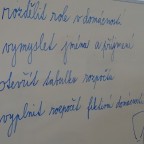 rozdělit role v domácnosti
vymyslet jména a příjmení
otevřít tabulku rozpočtu
vyplnit rozpočet fiktivní domácnosti